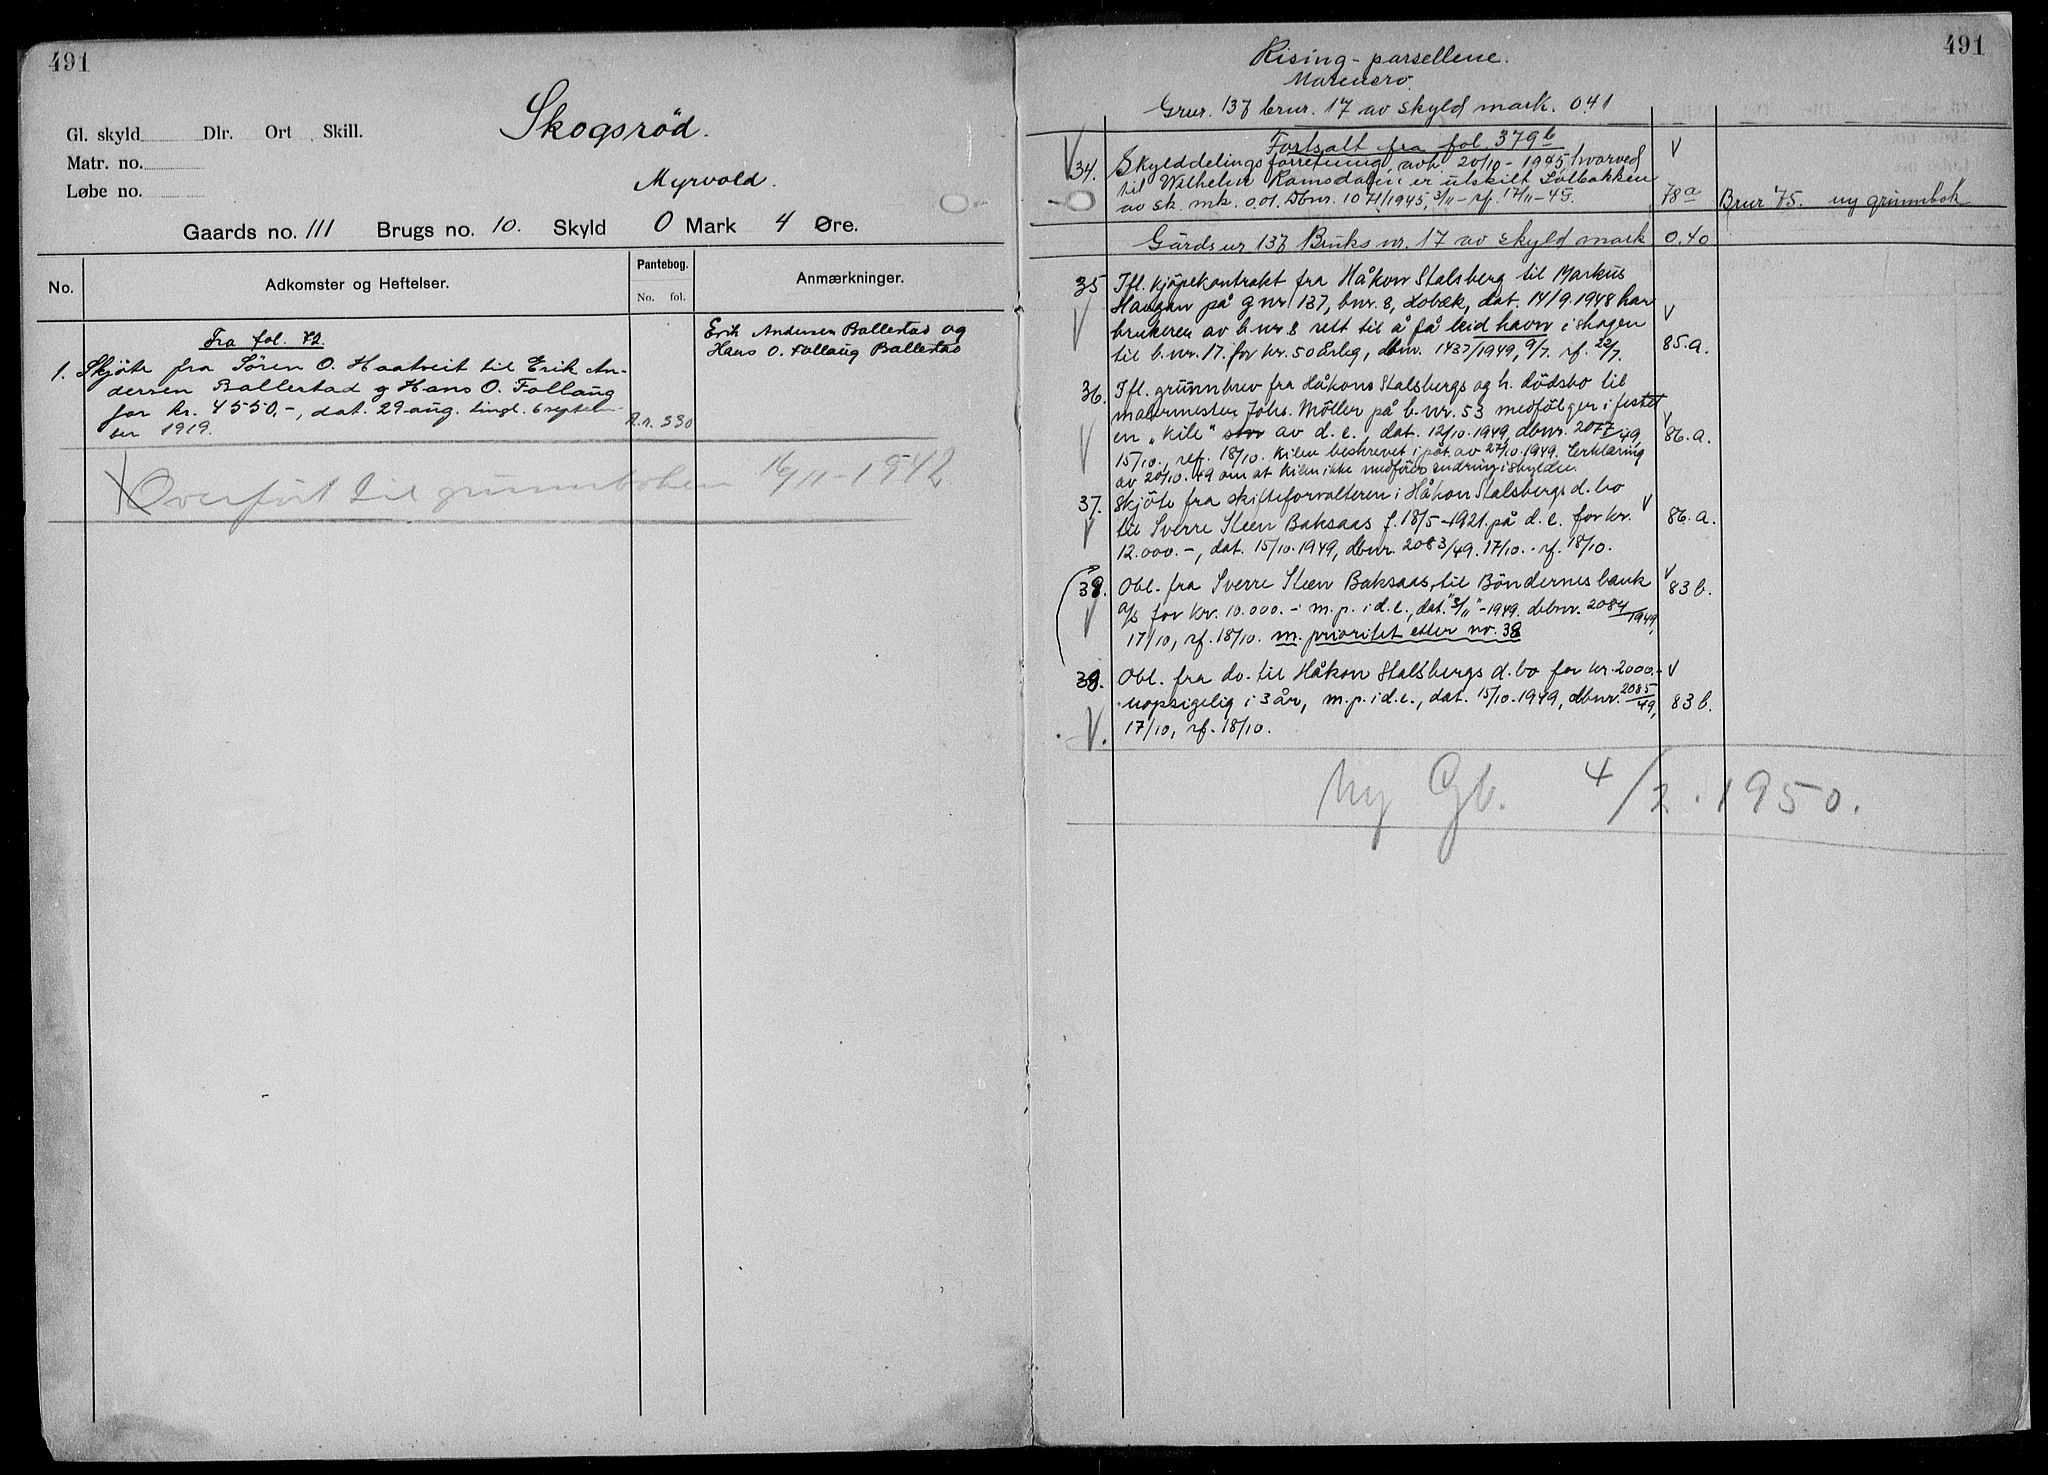 491
Skogsröd.
Gl. skyld Dlr. Ort Skill.
Matr. no.
Løbe no.
Myrvold.
Gaards no. 111 Brugs no. 10. Skyld 0 Mark 4 Øre.
No. Adkomster og Heftelser. Pantebog. No. fol. Anmærkninger.
Fra fol. 72.
1. Skjöte fra Sören O. Haatveit til Erik An-
dersen Ballestad og Hans O. Follaug
for kr. 4550,-, dat. 29 aug. tingl. 6 septem-
ber 1919. A.n. 330
Erik Andersen Ballestad og
Hans O. Follaug Ballestad
Overfört til grunnboken 16/11-1942
491
Rising-parsellene.
Marensro.
Gnr. 137 bnr. 17 av skyld mark. 0.41
Fortsatt fra fol. 379b
34. Skylddelingsforretning avh. 20/10-1945 hvorved V
til Wilhelm Ramsdalen er utskilt Solbakken
av sk. mk. 0.01. Dbnr. 1071/1945, 3/11- rf. 17/11-45. 78a Bnr 75. ny grunnbok
Gårdsnr 137 Bruksnr. 17 av skyld mark 0.40
35 Ifl. kjöpekontrakt fra Håkon Stalsberg til Markus
Haugan på gnr. 137, bnr. 8, Lobæk, dat. 14/9.1948 har
brukeren av b.nr 8 rett til å få leid havn i skogen V
til b.nr. 17. for kr. 50 årleg, dbnr. 1437/1949, 9/7. rf. 22/7. 85.a.
36. Ifl. grunnbrev fra Håkon Stalsbergs og h. dödsbo til
malermester Johs. Möller på b.nr. 53 medfölger i festet V
en „kile" av d.e., dat. 12/10.1949, dbnr. 2077/49, 86.a.
15/10., ref. 18/10. Kilen beskrevet i påt. av 27/10.1949. Erklæring
av 20/10.49 om at kilen ikke medförer endring i skylden.
37. Skjöte fra skifteforvalteren i Håkon Stalsbergs d.bo V
til Sverre Steen Baksaas f. 18/5-1921. på d.e. for kr. 86.a.
12.000.-, dat. 15/10.1949, dbnr. 2083/49. 17/10.- rf. 18/10.
39. Obl. fra Sverre Steen Baksaas, til Böndernes bank V 83 b.
A/S for kr. 10.000.- m.p. i d.e., dat. "3/11"-1949. dbnr. 2084/1949,
17/10, rf. 18/10. m. prioritet etter nr. 38
38. Obl. fra do. til Håkon Stalsbergs d.bo for kr. 2000.- V
uopsigelig i 3 år, m.p. i d.e., dat. 15/10.1949, dbnr. 2085/49, 83 b.
17/10, rf. 18/10.
Ny Gb. 4/2.1950.